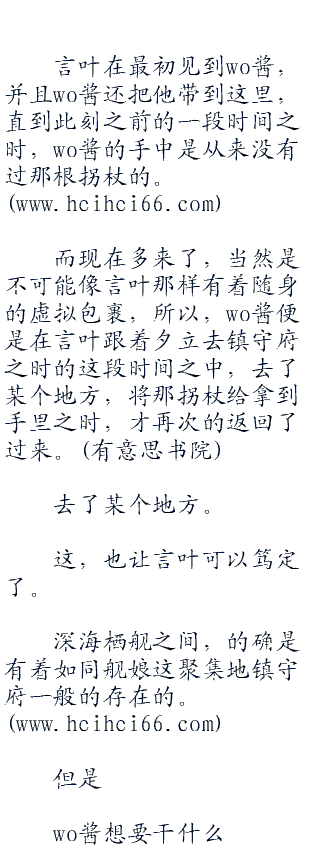 言叶在最初见到wo酱，
并且wo酱还把他带到这里，
直到此刻之前的一段时间之
时，wo酱的手中是从来没有
过那根拐杖的。
(www.hcihci66.com)
而现在多来了，当然是
不可能像言叶那样有着随身
的虚拟包裹，所以，wo酱便
是在言叶跟着夕立去镇守府
之时的这段时间之中，去了
某个地方，将那拐杖给拿到
手里之时，才再次的返回了
过来。(有意思书院)
去了某个地方。
这，也让言叶可以笃定
了。
深海栖舰之间，的确是
有着如同舰娘这聚集地镇守
府一般的存在的。
(www.hcihci66.com)
但是
wo酱想要干什么